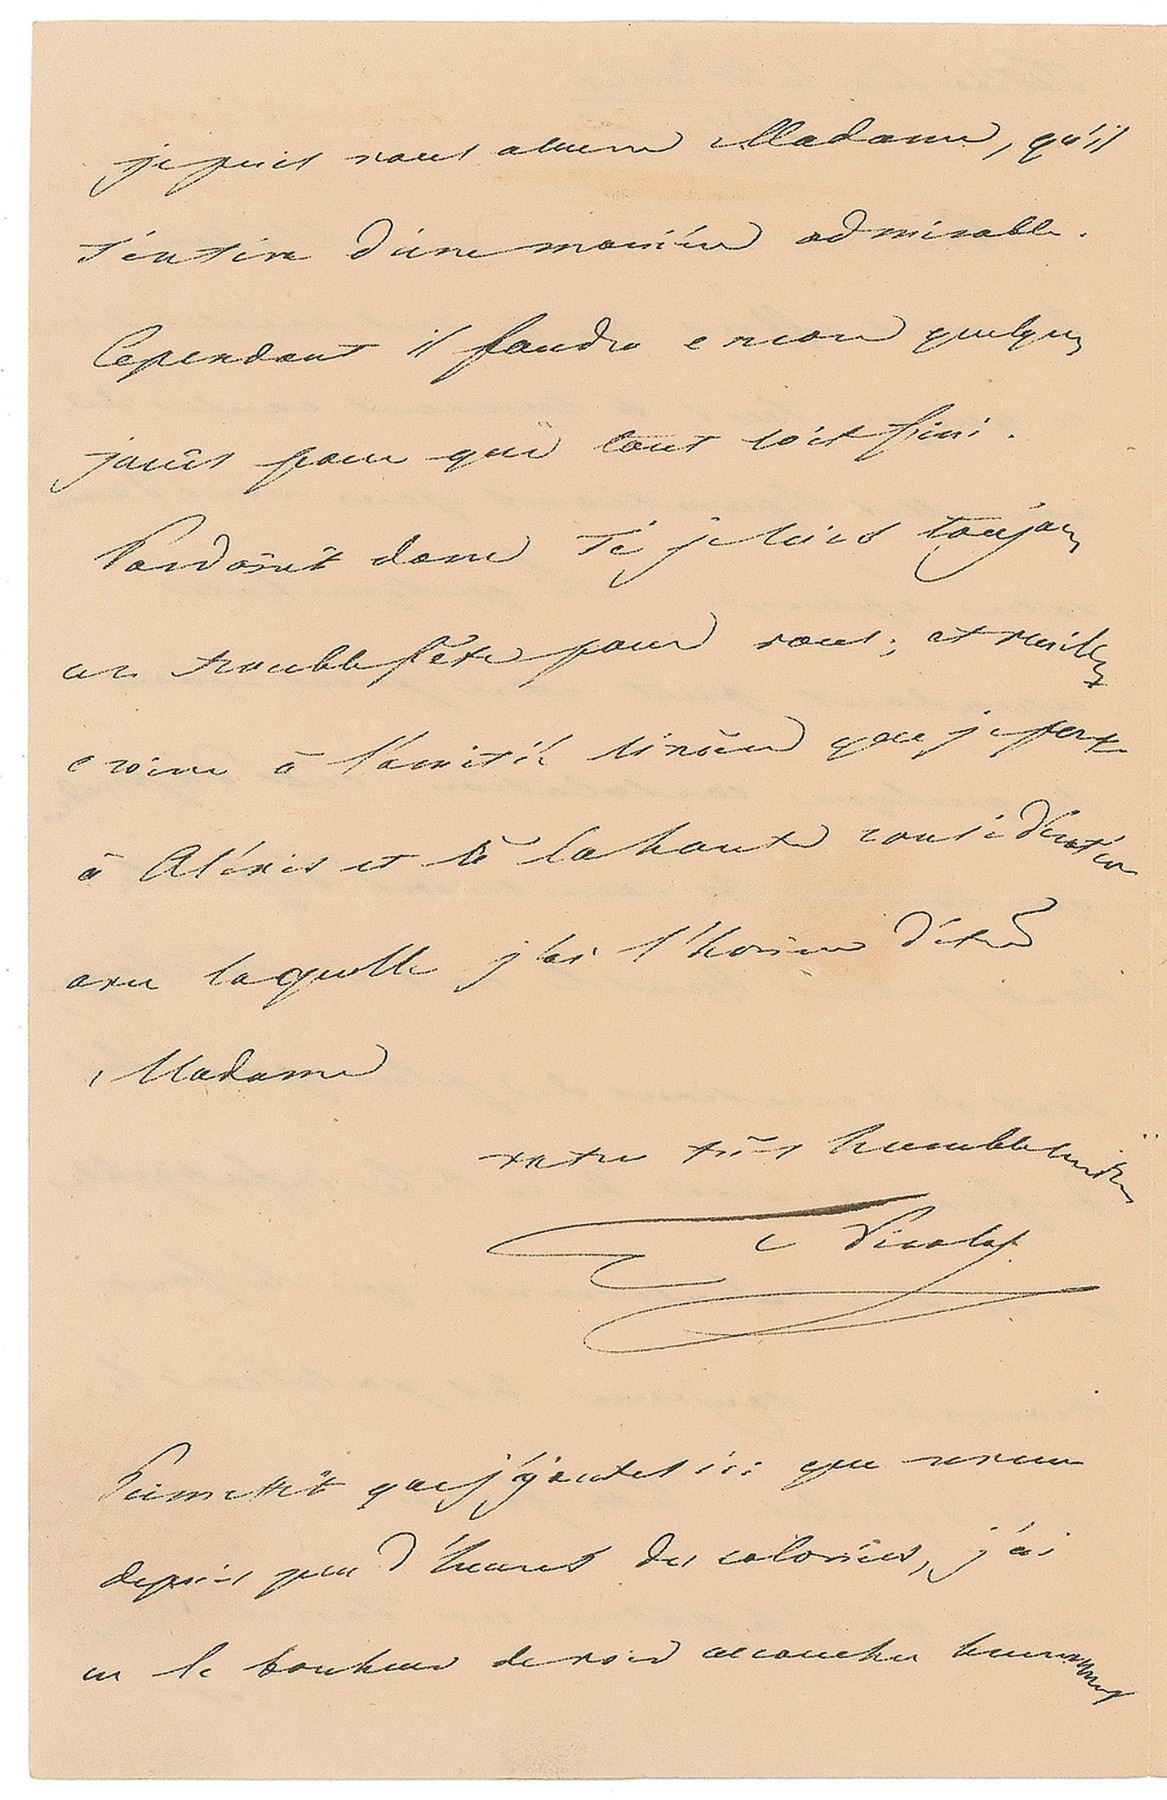 je puis vous assurer Madame, qu'il
s'en tire d'une manière admirable.
Cependant il faudra encore quelques
jours pour que tout soit fini.
Pardonnéz donc si je suis toujours
un trouble fête pour vous; et veuillez
croire à l'amitié sincère que je porte
à Alexis et à la haute considération
avec laquelle j'ai l'honneur d'être
Madame
votre très humble serviteur
C Picolet
Permettéz que j'ajoute ici que revenu
depuis peu d'heures des colonies, j'ai
eu le bonheur de voir accoucher heureusement